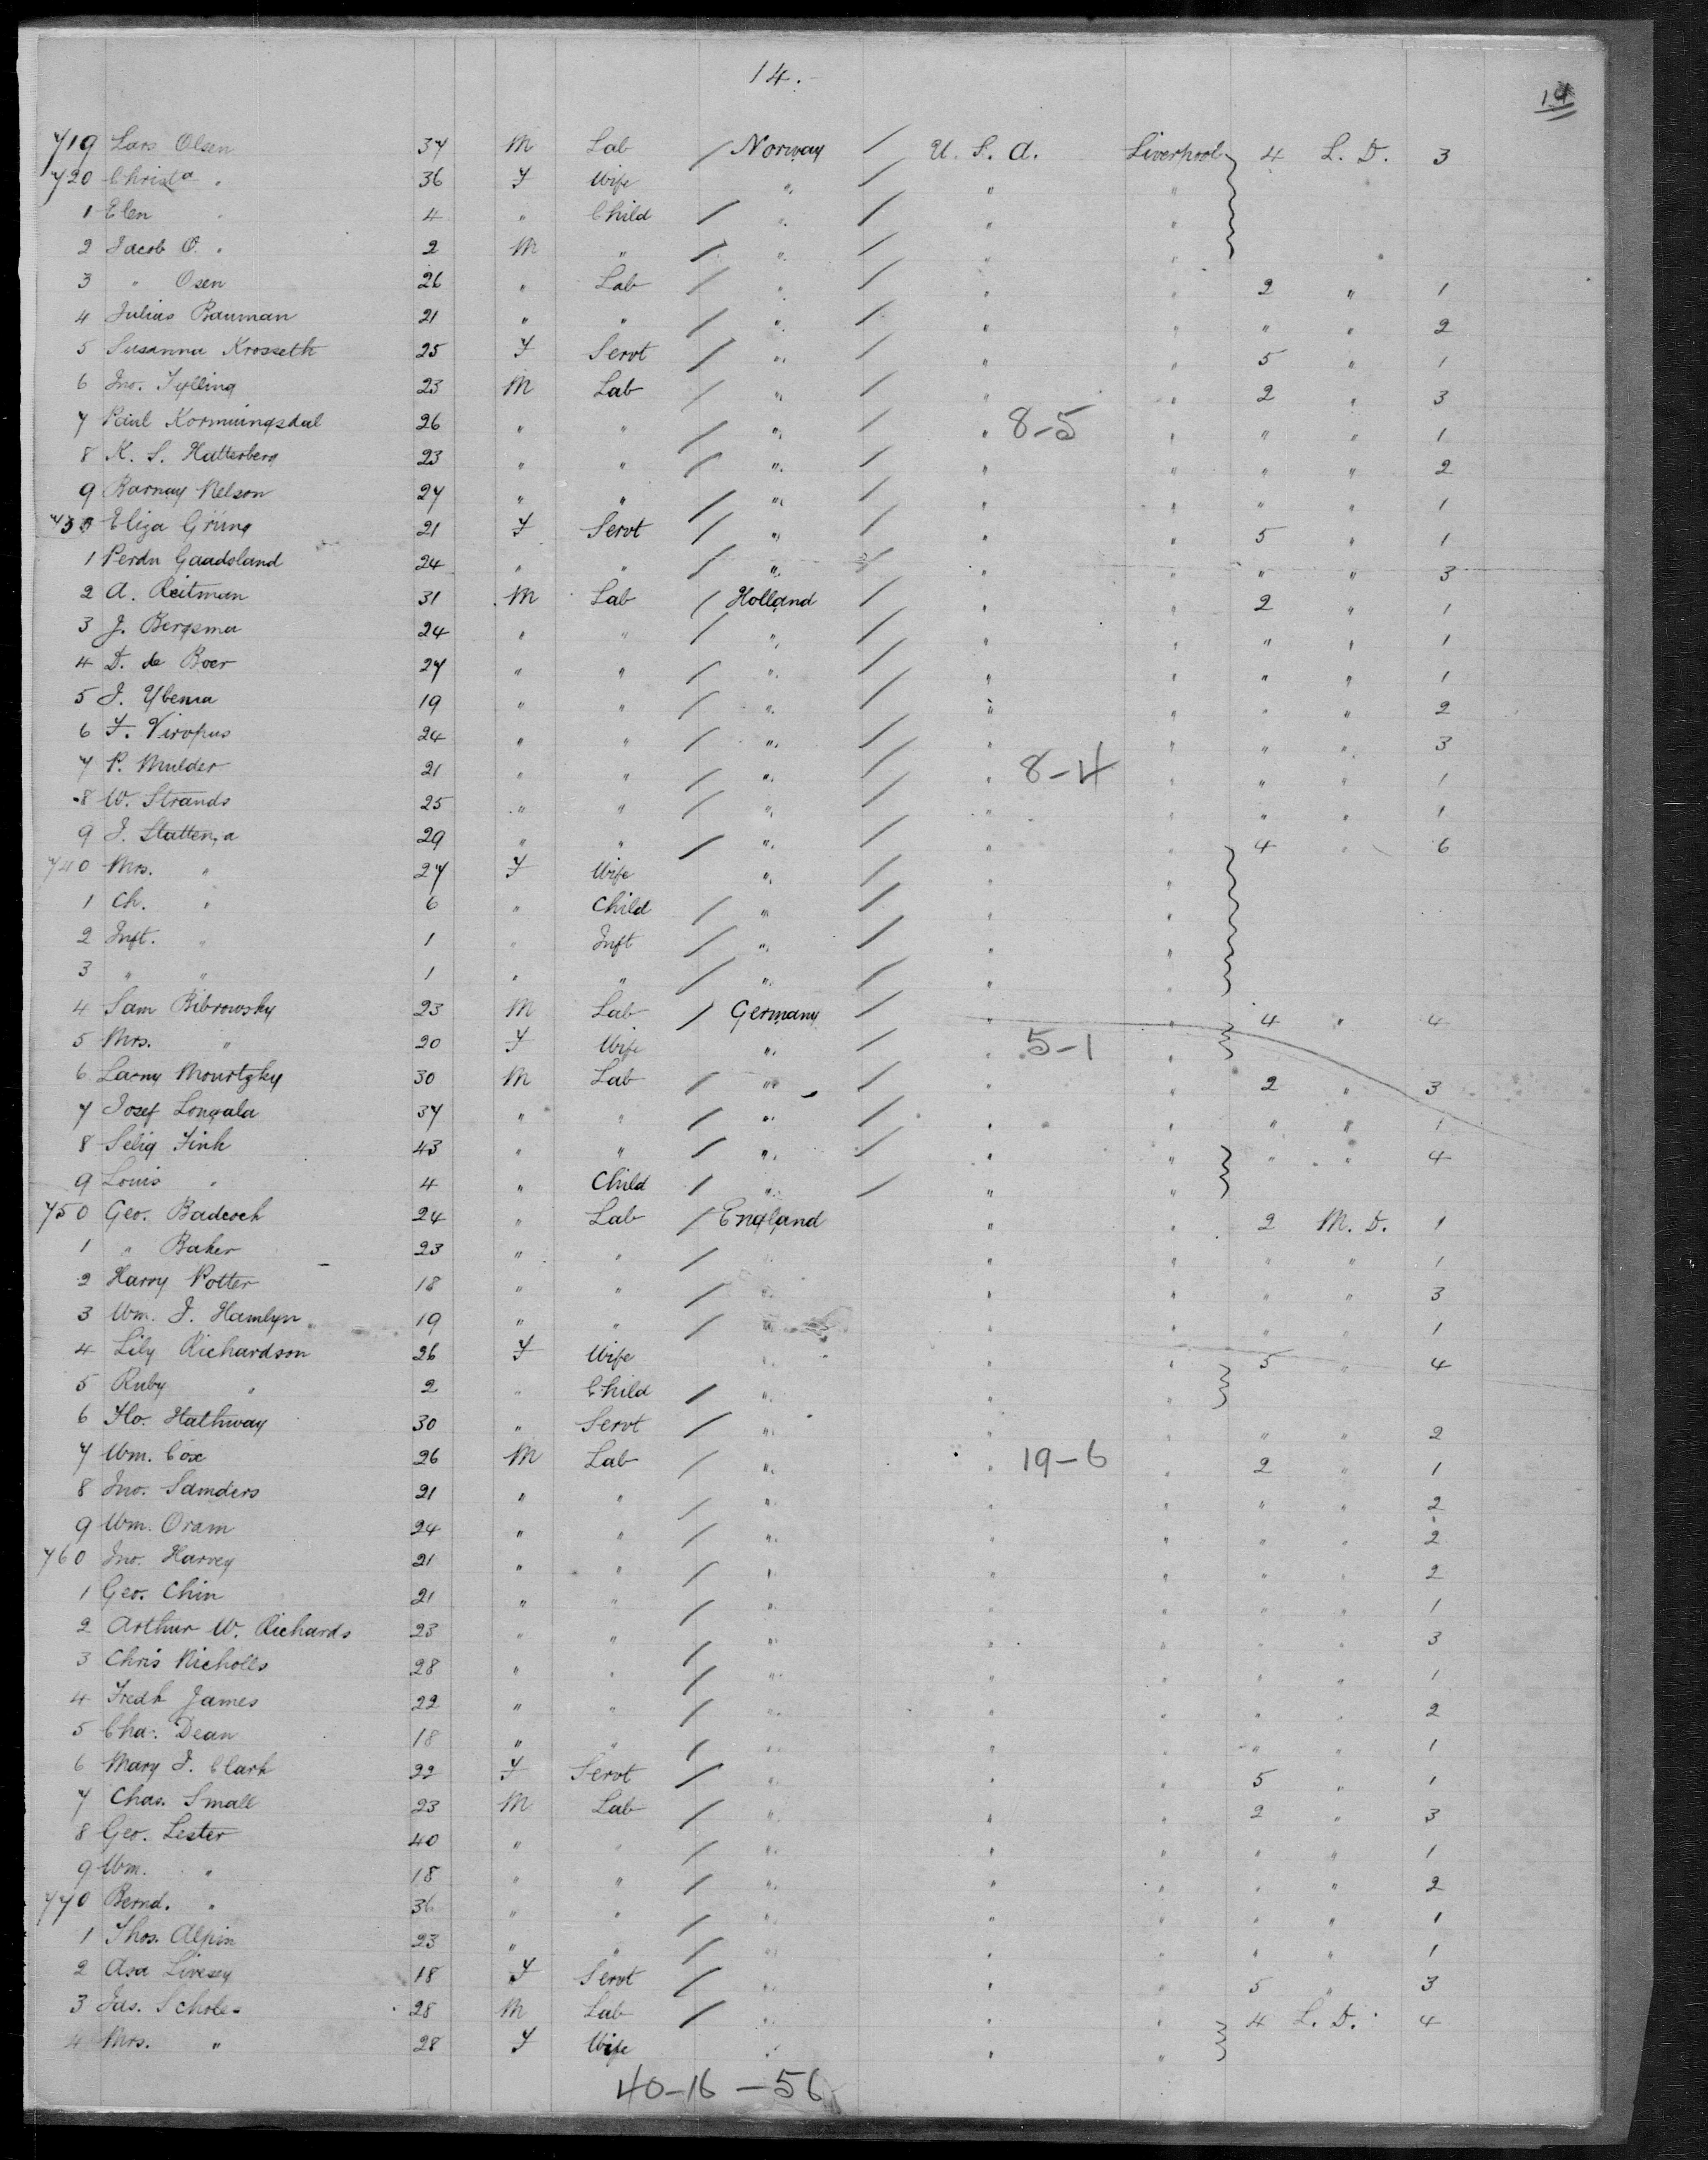 14.
14
719 Lars Olsen 37 M Lab / Norway / U. S. A. Liverpool 4 L. D. 3
720 Christa " 36 F Wife " / " "
1 Elen " 4 " Child / " / " "
2 Jacob O. " 2 M " / " / " "
3 " Osen 26 " Lab / " / " " 2 " 1
4 Julius Bauman 21 " " / " / " " " " 2
5 Susanna Krosseth 25 F Servt / " / " " 5 " 1
6 Jno. Tylling 23 M Lab / " / " " 2 " 3
7 Paul Kormungsdal 26 " " / " / " 8-5 " " " 1
8 K. S. Hatterberg 23 " " / " / " " " " 2
9 Barnay Nelson 27 " " / " / " " " " 1
730 Eliza Grüng 21 F Servt / " / " " 5 " 1
1 Perdn Gaadsland 24 " " / " / " " " " 3
2 A. Reitman 31 M Lab / Holland / " " 2 " 1
3 J. Bergsma 24 " " / " / " " " " 1
4 D. de Boer 27 " " / " / " " " " 1
5 J. Ybema 19 " " / " / " " " " 2
6 F. Viropus 24 " " / " / " " " " 3
7 P. Mulder 21 " " / " / " 8-4 " " " 1
8 W. Strands 25 " " / " / " " " " 1
9 J. Stattenga 29 " " / " / " " 4 " 6
740 Mrs. " 27 F Wife " / " "
1 Ch. " 6 " Child / " / " "
2 Inft. " 1 " Inft / " / " "
3 " " 1 " " / " / " "
4 Sam Bibrowsky 23 M Lab / Germany / " " 4 " 4
5 Mrs. " 20 F Wife " / " 5-1 "
6 Larny Mourtzky 30 M Lab / " / " " 2 " 3
7 Josef Longala 37 " " / " / " " " " 1
8 Selig Fink 43 " " / " / " " " " 4
9 Louis " 4 " Child / " / " "
750 Geo. Badcock 24 " Lab / England " " 2 M. D. 1
1 " Baker 23 " " / " " " " " 1
2 Harry Potter 18 " " / " " " " " 3
3 Wm. J. Hamlyn 19 " " / " " " " " 1
4 Lily Richardson 26 F Wife " " " 5 " 4
5 Ruby " 2 " Child / " " "
6 Flo. Hathway 30 " Servt / " " " " " 2
7 Wm. Cox 26 M Lab / " " 19-6 " 2 " 1
8 Jno. Samders 21 " " / " " " " " 2
9 Wm. Oram 24 " " / " " " " " 2
760 Jno. Harvey 21 " " / " " " " " 2
1 Geo. Chin 21 " " / " " " " " 1
2 Arthur W. Richards 23 " " / " " " " " 3
3 Chris Nicholls 28 " " / " " " " " 1
4 Fredk James 22 " " / " " " " " 2
5 Cha: Dean 18 " " / " " " " " 1
6 Mary J. Clark 22 F Servt / " " " 5 " 1
7 Chas. Small 23 M Lab / " " " 2 " 3
8 Geo. Lester 40 " " / " " " " " 1
9 Wm. " 18 " " / " " " " " 2
770 Bernd. " 36 " " / " " " " " 1
1 Thos. Alpin 23 " " / " " " " " 1
2 Asa Livesey 18 F Servt / " " " 5 " 3
3 Jas. Scholes 28 M Lab / " " " 4 L. D. 4
4 Mrs. " 28 F Wife " " "
40-16-56